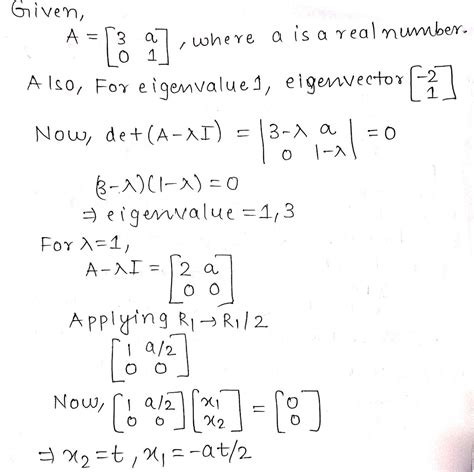 Given,
A = [3 a
0 1], where a is a real number.
Also, For eigenvalue 1, eigenvector [-2
1]
Now, det(A-λI) = |3-λ a
0 1-λ| = 0
(3-λ)(1-λ) = 0
⇒ eigenvalue = 1, 3
For λ=1,
A-λI = [2 a
0 0]
Applying R₁ → R₁/2
[1 a/2
0 0]
Now, [1 a/2
0 0] [x₁
x₂] = [0
0]
⇒ x₂ = t, x₁ = -at/2